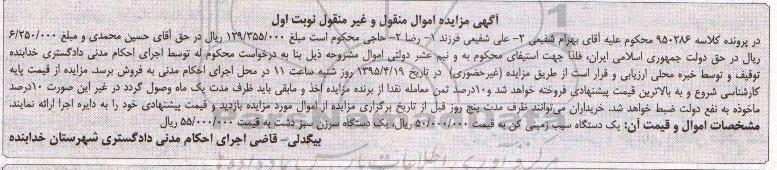 آگهی مزایده اموال منقول و غیر منقول نوبت اول
در پرونده کلاسه ۹۵۰۲۸۶ محکوم علیه آقای بهرام شفیعی ۲- علی شفیعی فرزند ۱- رضا ۲- حاجی محکوم است مبلغ ۱۳۹/۳۵۵/۰۰۰ ریال در حق آقای حسین محمدی و مبلغ ۶/۲۵۰/۰۰۰
ریال در حق دولت جمهوری اسلامی ایران، فلذا جهت استیفای محکوم به و نیم عشر دولتی اموال مشروحه ذیل بنا به درخواست محکوم له توسط اجرای احکام مدنی دادگستری خدابنده
توقیف و توسط خبره محلی ارزیابی و قرار است از طریق مزایده (غیرحضوری) در تاریخ ۱۳۹۵/۴/۱۹ روز شنبه ساعت ۱۱ در محل اجرای احکام مدنی به فروش برسد. مزایده از قیمت پایه
کارشناسی شروع و به بالاترین قیمت پیشنهادی فروخته خواهد شد و ۱۰درصد ثمن معامله نقدا از برنده مزایده اخذ و مابقی باید ظرف مدت یک ماه وصول گردد در غیر این صورت ۱۰درصد
ماخوذه به نفع دولت ضبط خواهد شد. خریداران می‌توانند ظرف مدت پنج روز قبل از تاریخ برگزاری مزایده از اموال مورد مزایده بازدید و قیمت پیشنهادی خود را به دایره اجرا ارائه نمایند.
مشخصات اموال و قیمت آن: یک دستگاه سیب زمینی کن به قیمت ۵۰/۰۰۰/۰۰۰ ریال، یک دستگاه سرزن سبز دشت به قیمت ۵۵/۰۰۰/۰۰۰ ریال
بیگدلی- قاضی اجرای احکام مدنی دادگستری شهرستان خدابنده